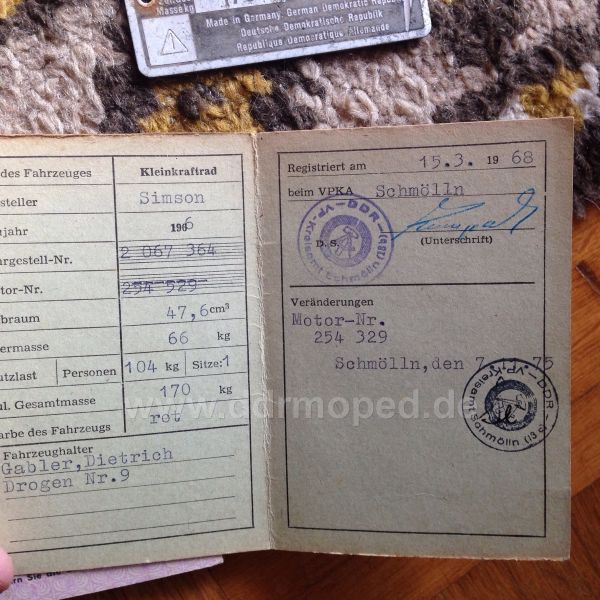 Masse kg 170
Made in Germany German Democratic Republic
Deutsche Demokratische Republik
Republique Democratique Allemande
des Fahrzeuges Kleinkraftrad
steller Simson
ujahr 1966
rgestell-Nr. 2 067 364
tor-Nr. 254 529
braum 47,6 cm³
ermasse 66 kg
utzlast Personen 104 kg Sitze: 1
ul. Gesamtmasse 170 kg
arbe des Fahrzeugs rot
Fahrzeughalter
Gabler, Dietrich
Drogen Nr. 9
Registriert am 15.3. 1968
beim VPKA Schmölln
VP-Kreisamt Schmölln (48)
DDR
D. S. (Unterschrift)
Veränderungen
Motor-Nr.
254 329
Schmölln, den 75
DDR
VP-Kreisamt Schmölln
www.ddrmoped.de